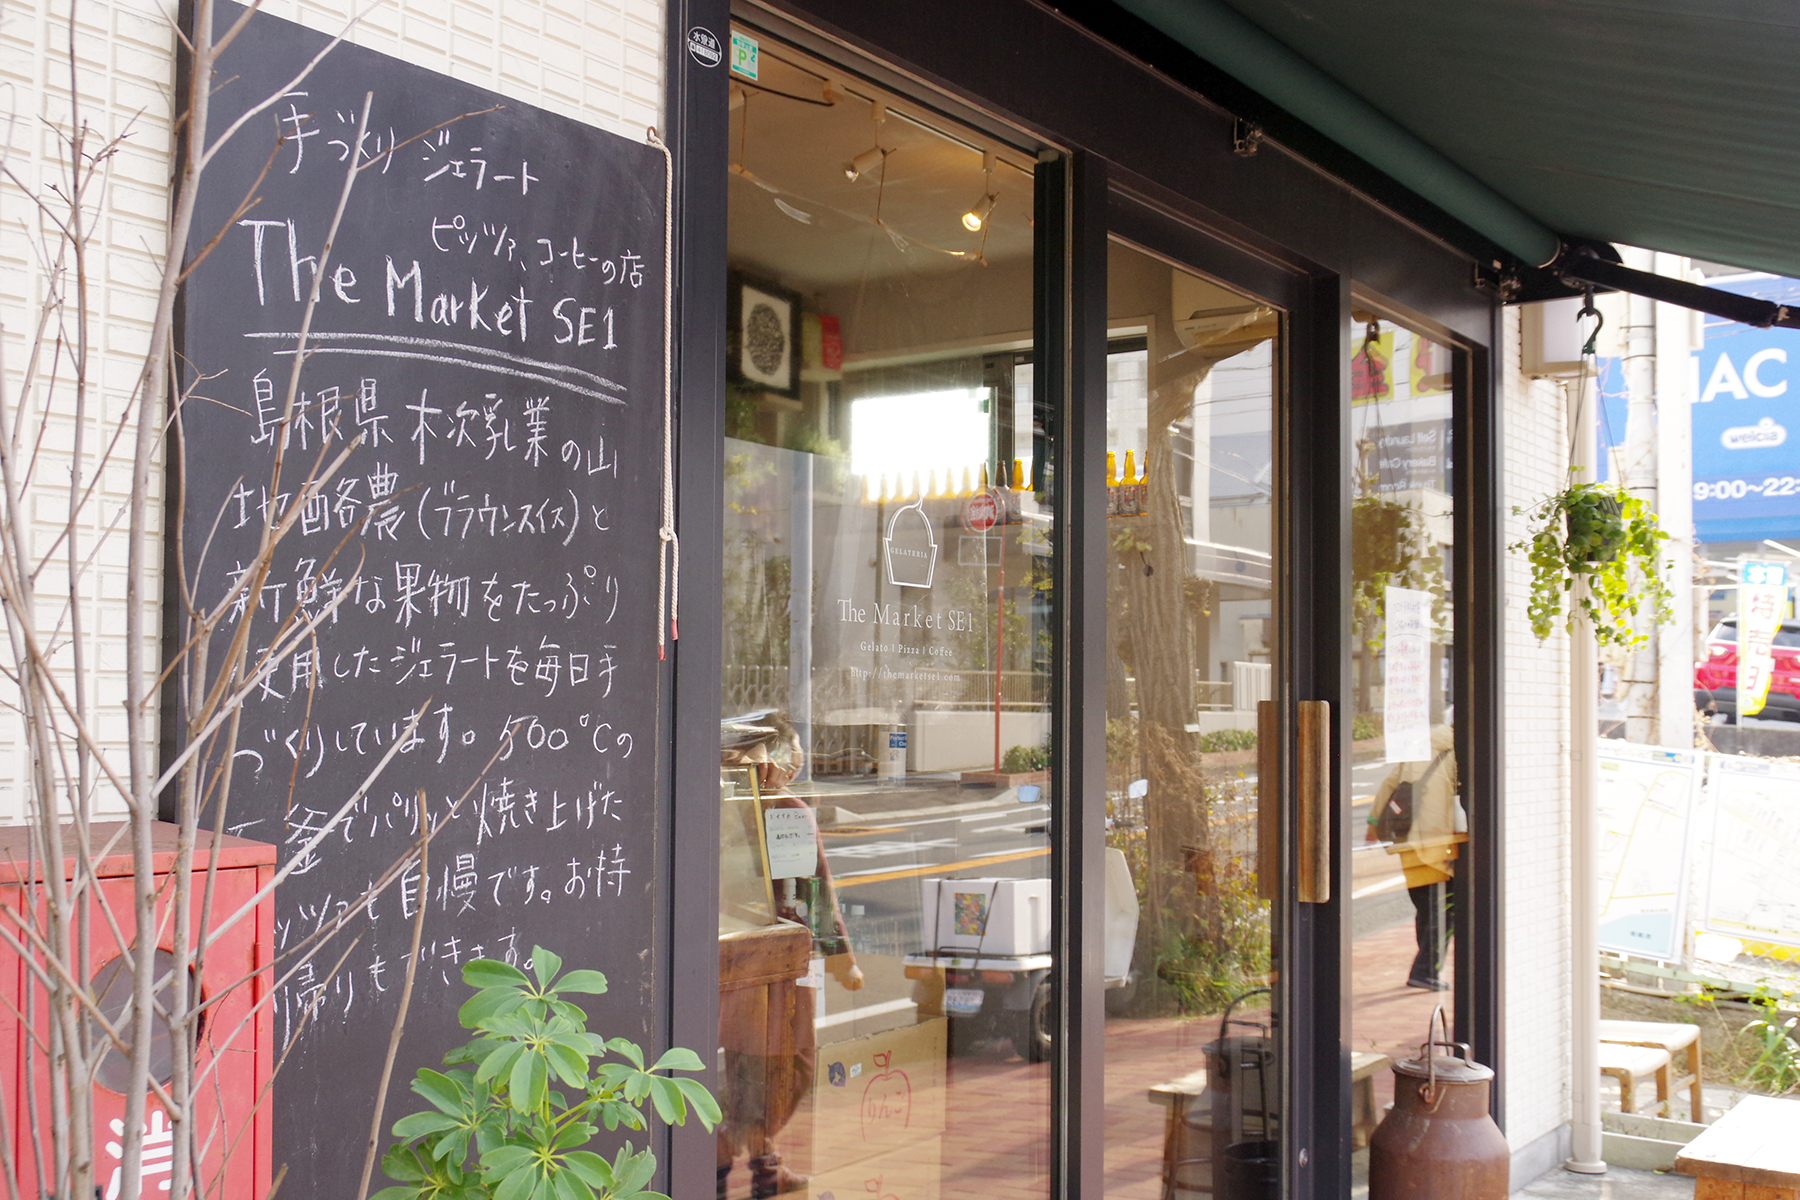 手づくり ジェラート
ピッツァ、コーヒーの店
The Market SE1
島根県 木次乳業の山
地酪農(ブラウンスイス)と
新鮮な果物をたっぷり
使用したジェラートを毎日手
づくりしています。500℃の
釜でパリッと焼き上げた
ッツァも自慢です。お持
帰りもできます。
消
水曜道
P
GELATERIA
The Market SE1
Gelato | Pizza | Coffee
http://themarketse1.com
りんご
Self Laundry
Bakery Cafe
IAC
welcia
9:00~22:
特売日